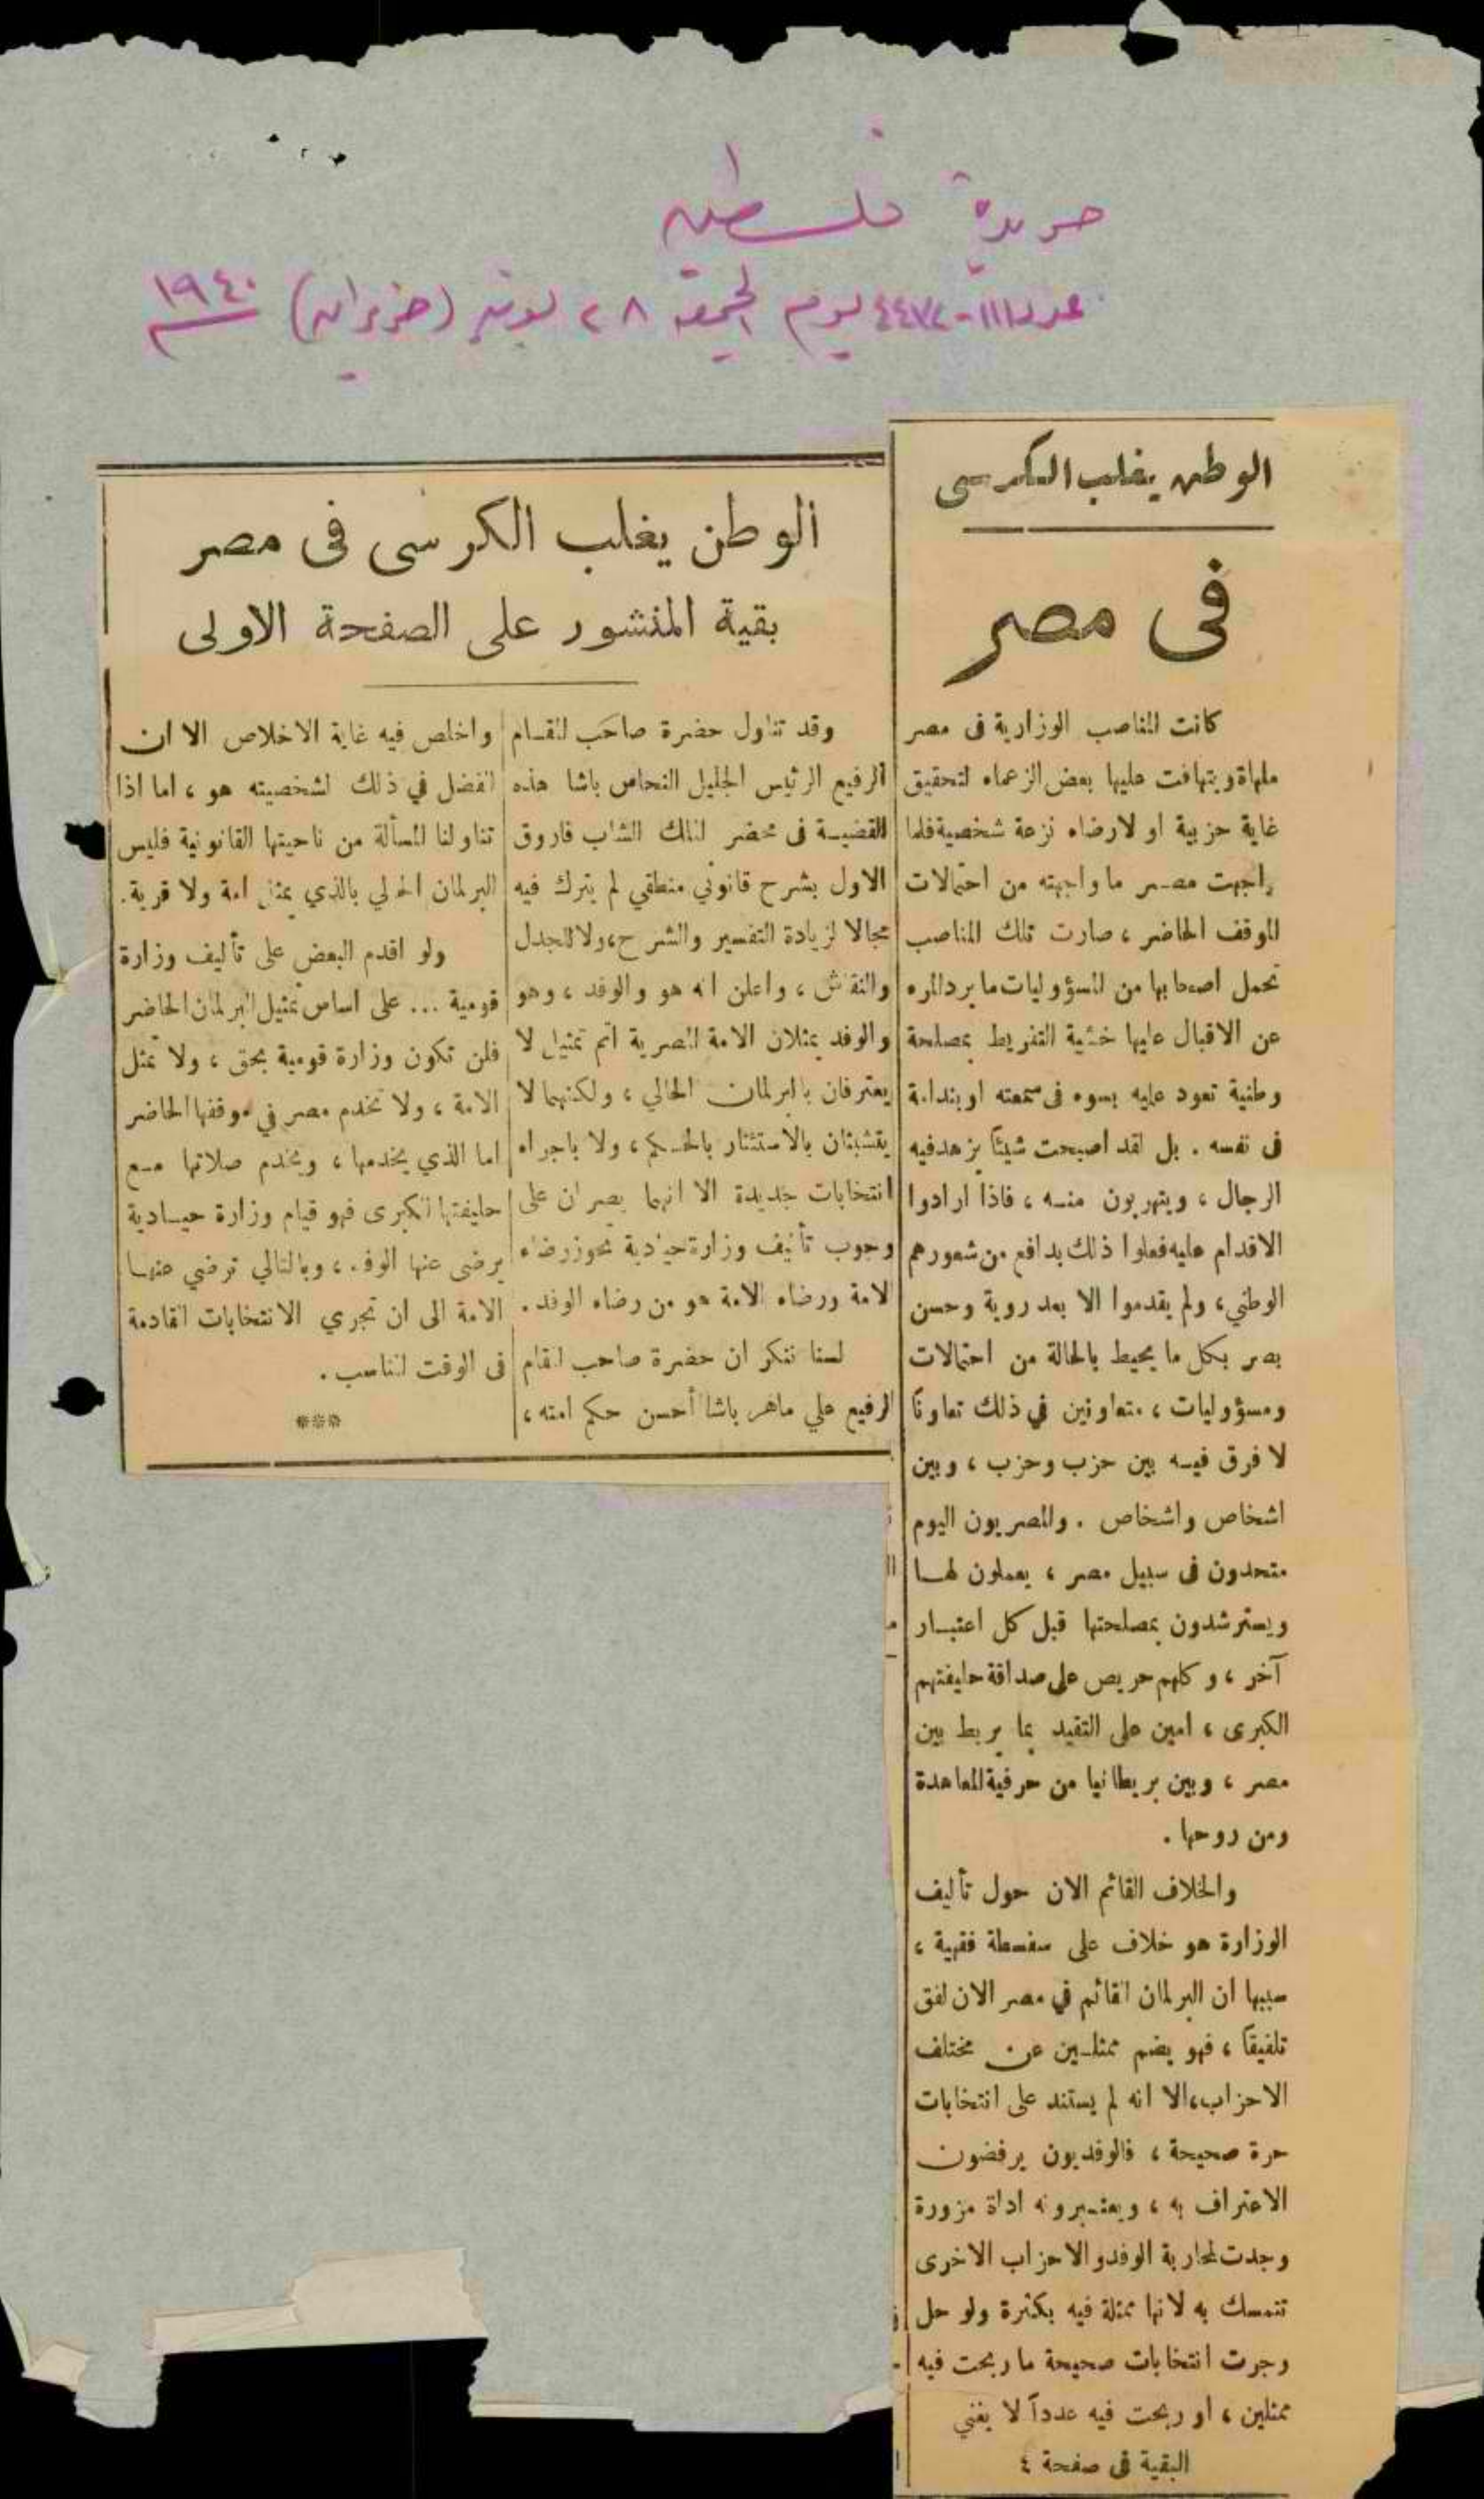 جريدة فلسطين
عدد ١١١-٤٤٧٢ يوم الجمعة ٢٨ يونيه (حزيران) ١٩٤٠
الوطن يغلب الكرسى
فى مصر
كانت المناصب الوزارية فى مصر
ملهاة ويتهافت عليها بعض الزعماء لتحقيق
غاية حزبية او لارضاء نزعة شخصية فلما
واجهت مصر ما واجهته من احتمالات
الموقف الحاضر ، صارت تلك المناصب
تحمل اصحابها من المسؤوليات ما يرد المرء
عن الاقبال عليها خشية التفريط بمصلحة
وطنية تعود عليه بسوء فى سمعته او بندامة
فى نفسه . بل لقد اصبحت شيئاً يزهد فيه
الرجال ، ويتهربون منه ، فاذا ارادوا
الاقدام عليه فعلوا ذلك بدافع من شعورهم
الوطني ، ولم يقدموا الا بعد روية وحسن
بصر بكل ما يحيط بالحالة من احتمالات
ومسؤوليات ، متعاونين في ذلك تعاوناً
لا فرق فيه بين حزب وحزب ، وبين
اشخاص واشخاص . والمصريون اليوم
متحدون فى سبيل مصر ، يعملون لها
ويسترشدون بمصلحتها قبل كل اعتبار
آخر ، وكلهم حريص على صداقة حليفتهم
الكبرى ، امين على التقيد بما يربط بين
مصر ، وبين بريطانيا من حرفية المعاهدة
ومن روحها .
والخلاف القائم الان حول تأليف
الوزارة هو خلاف على سفسطة فقهية ،
سببها ان البرلمان القائم في مصر الان لفق
تلفيقاً ، فهو يضم ممثلين عن مختلف
الاحزاب ، الا انه لم يستند على انتخابات
حرة صحيحة ، فالوفديون يرفضون
الاعتراف به ، ويعتبرونه اداة مزورة
وجدت لمحاربة الوفد والاحزاب الاخرى
تتمسك به لانها ممثلة فيه بكثرة ولو حل
وجرت انتخابات صحيحة ما ربحت فيه
ممثلين ، او ربحت فيه عدداً لا يغني
البقية فى صفحة ٤
الوطن يغلب الكرسى فى مصر
بقية المنشور على الصفحة الاولى
وقد تناول حضرة صاحب المقام
الرفيع الرئيس الجليل النحاس باشا هذه
القضية فى محضر الملك الشاب فاروق
الاول بشرح قانوني منطقي لم يترك فيه
مجالا لزيادة التفسير والشرح ، ولا للجدل
والنقاش ، واعلن انه هو والوفد ، وهو
والوفد يمثلان الامة المصرية اتم تمثيل لا
يعترفان بالبرلمان الحالي ، ولكنهما لا
يتشبثان بالاستئثار بالحكم ، ولا باجراء
انتخابات جديدة الا انهما يصران على
وجوب تأليف وزارة حيادية تحوز رضاء
الامة ورضاء الامة هو من رضاء الوفد .
لسنا ننكر ان حضرة صاحب المقام
الرفيع علي ماهر باشا أحسن حكم امته ،
واخلص فيه غاية الاخلاص الا ان
الفضل في ذلك لشخصيته هو ، اما اذا
تناولنا المسألة من ناحيتها القانونية فليس
البرلمان الحالي بالذي يمثل امة ولا قرية .
ولو اقدم البعض على تأليف وزارة
قومية ... على اساس تمثيل البرلمان الحاضر
فلن تكون وزارة قومية بحق ، ولا تمثل
الامة ، ولا تخدم مصر في موقفها الحاضر
اما الذي يخدمها ، ويخدم صلاتها مع
حليفتها الكبرى فهو قيام وزارة حيادية
يرضى عنها الوفد ، وبالتالي ترضي عنها
الامة الى ان تجري الانتخابات القادمة
فى الوقت المناسب .
***